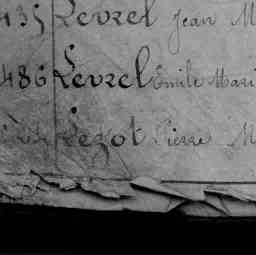 435 Levrel Jean M
486 Levrel Emile Mari
Lezot Pierre M